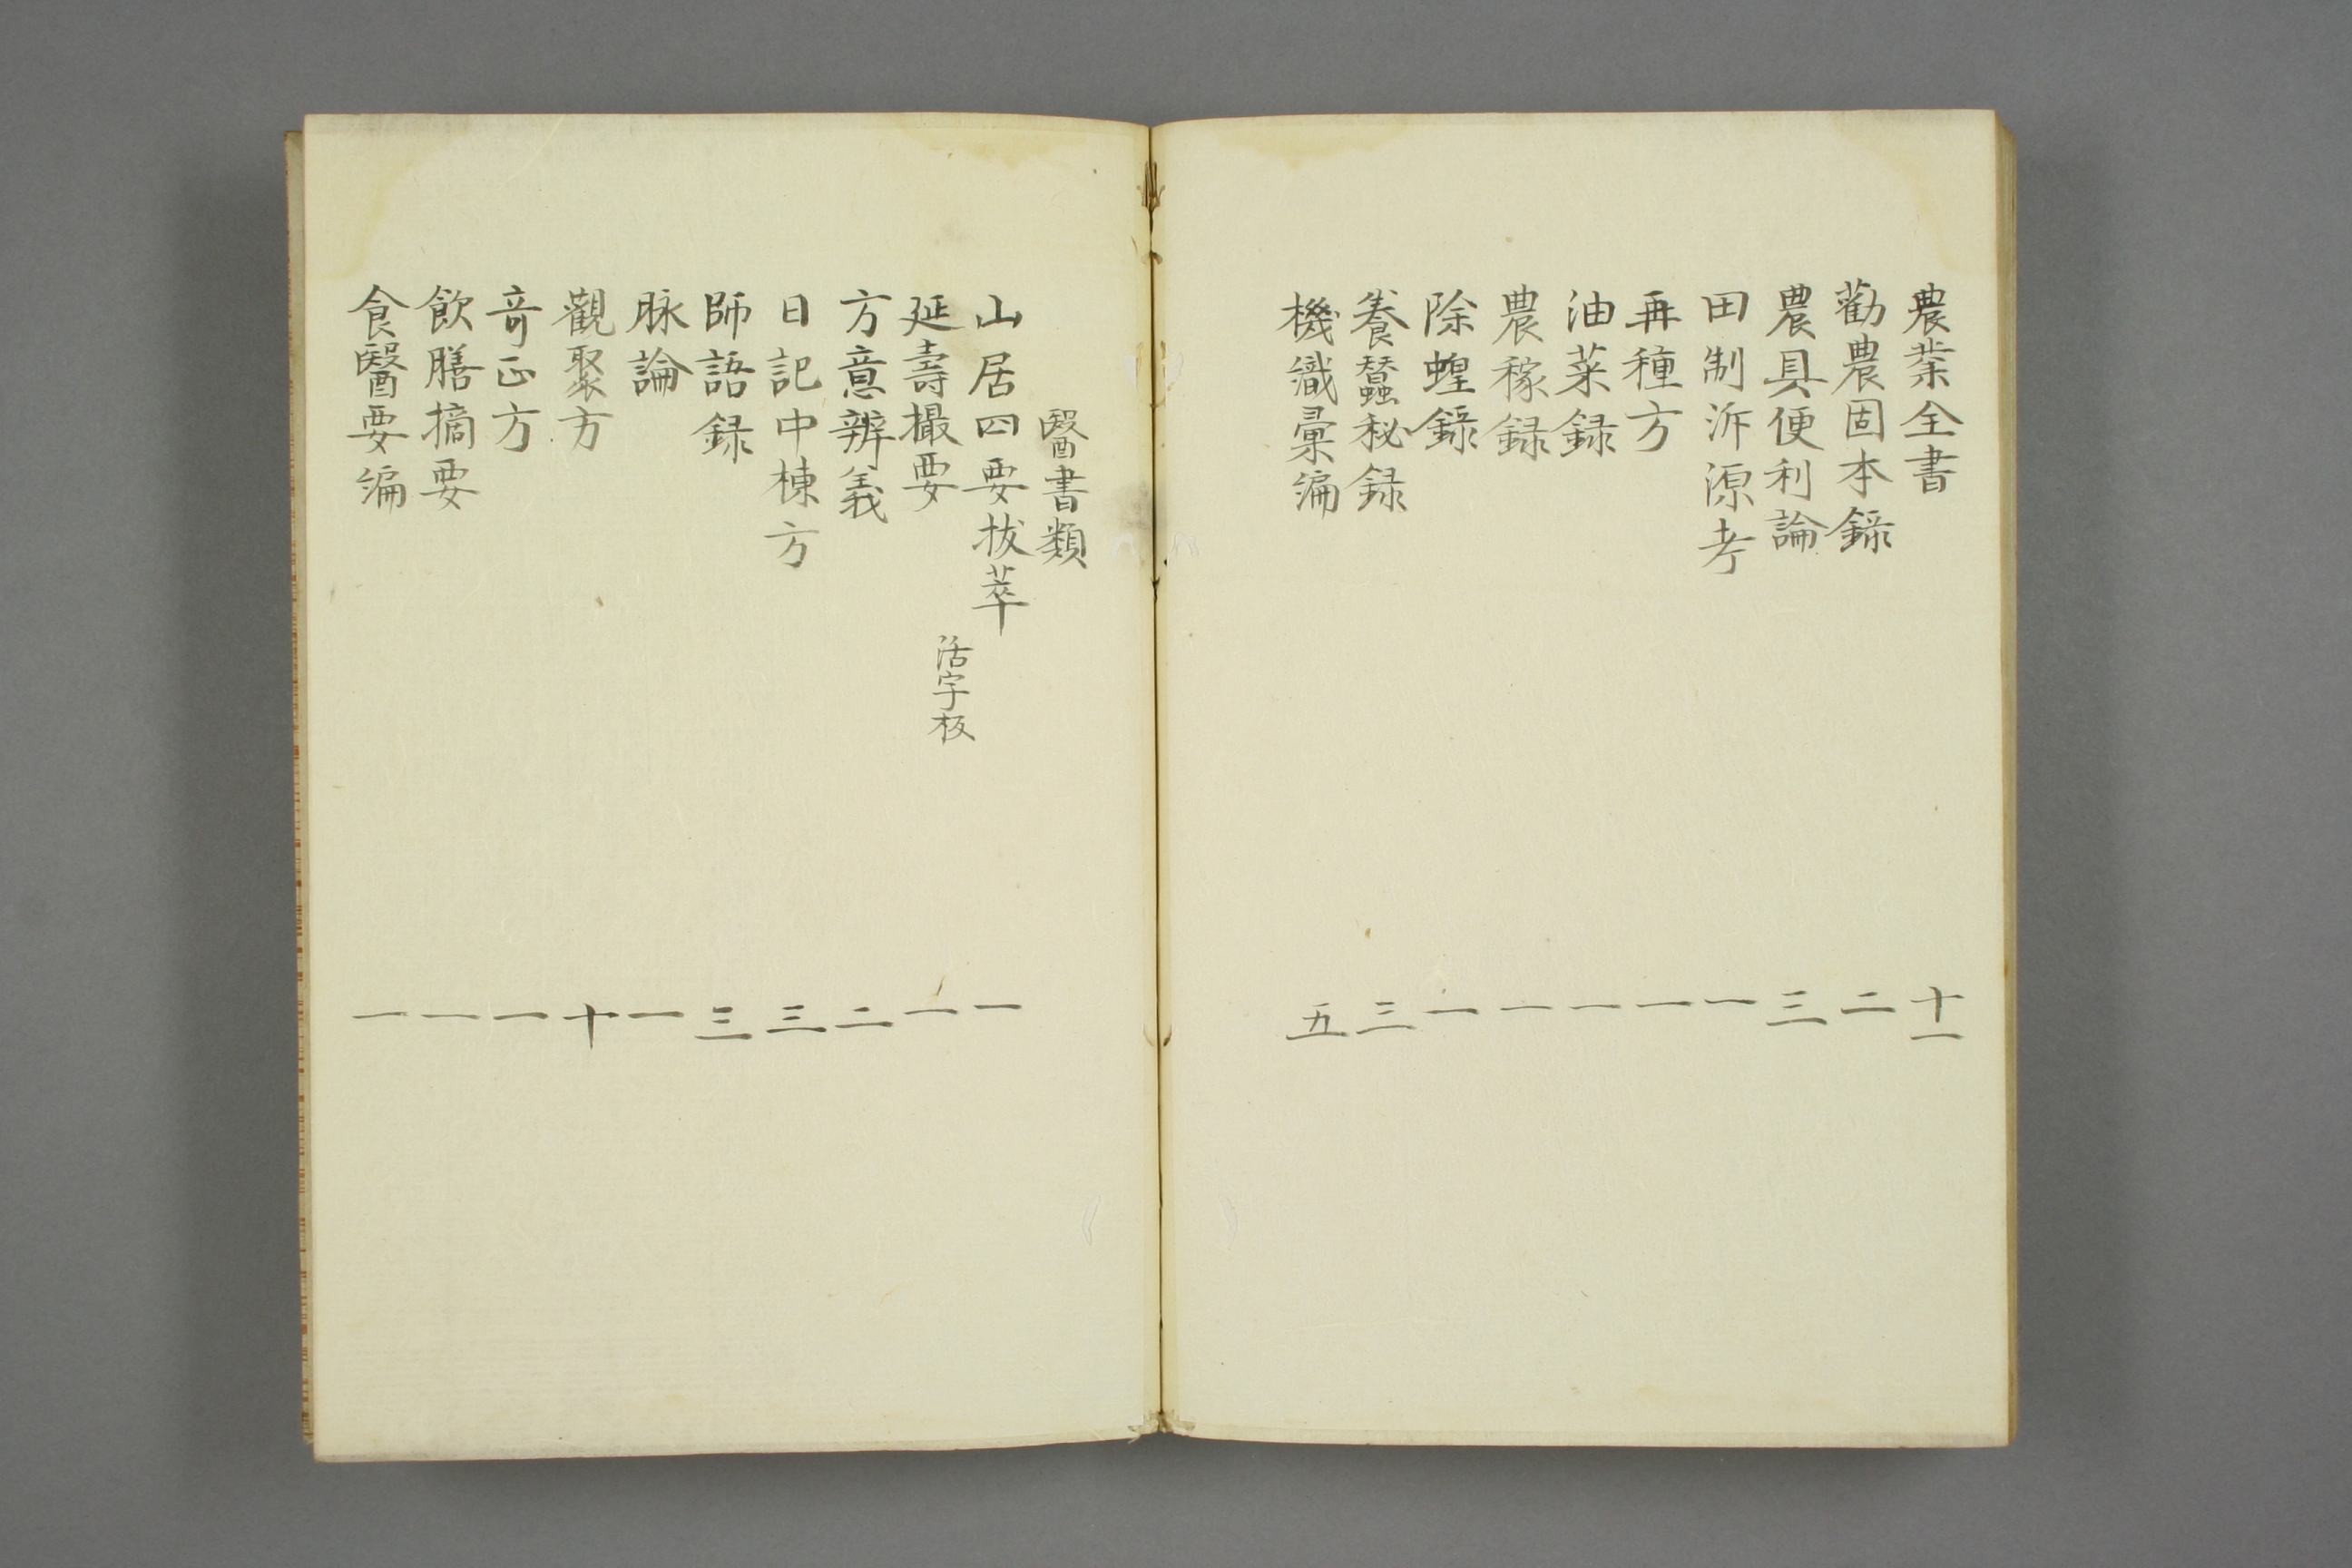 農業全書 十一
勸農固本錄 二
農具便利論 三
田制泝源考 一
再種方 一
油菜録 一
農稼録 一
除蝗錄 一
養蠶秘録 三
機織彙編 五
醫書類
山居四要抜萃 活字板 一
延壽撮要 一
方意辨義 二
日記中棟方 三
師語録 三
脉論 一
觀聚方 十
竒正方 一
飲膳摘要 一
食醫要編 一